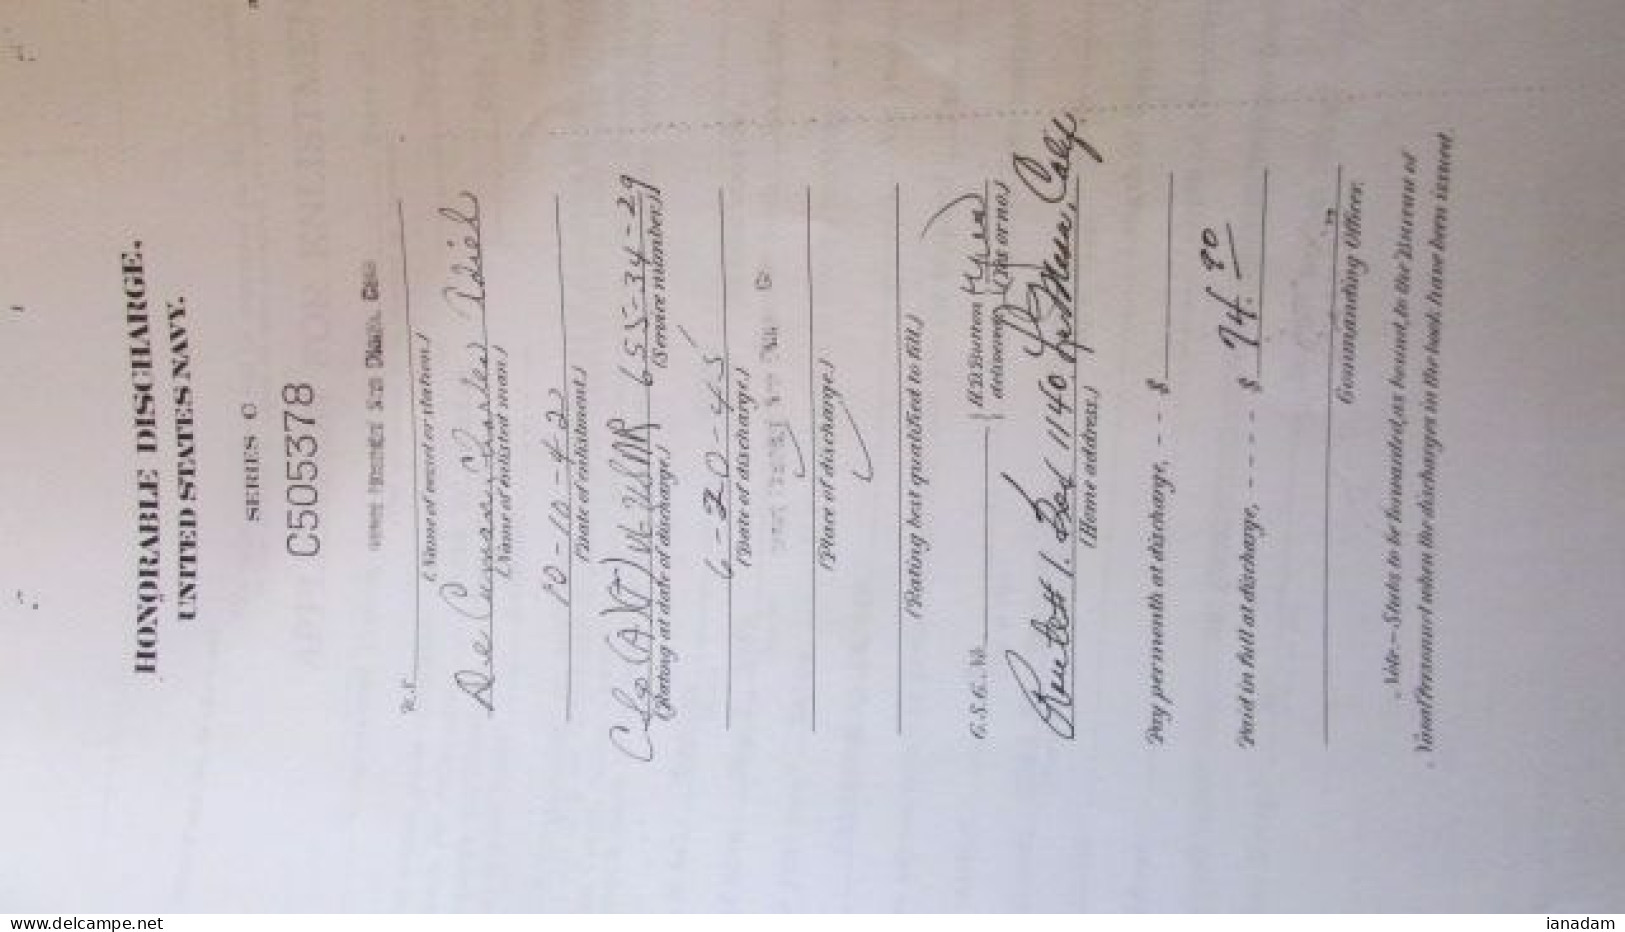 HONORABLE DISCHARGE.
UNITED STATES NAVY.
SERIES C
C505378
(Name of vessel or station)
De Charles
(Name of enlisted man)
10-10-42
(Date of enlistment)
655-34-29
(Rating at date of discharge) (Service number)
6-20-45
(Date of discharge)
(Place of discharge)
(Rating best qualified to fill)
H.D. Button
C.S.C. No. delivered (Yes or no)
1. Box 1140 La Mesa, Calif
(Home address)
Pay per month at discharge, - - - $
Paid in full at discharge, - - - - - $ 74.90
Commanding Officer.
Note.—Stubs to be forwarded, as bound, to the Bureau of
Naval Personnel when the discharges in the book have been issued.
www.delcampe.net
ianadam